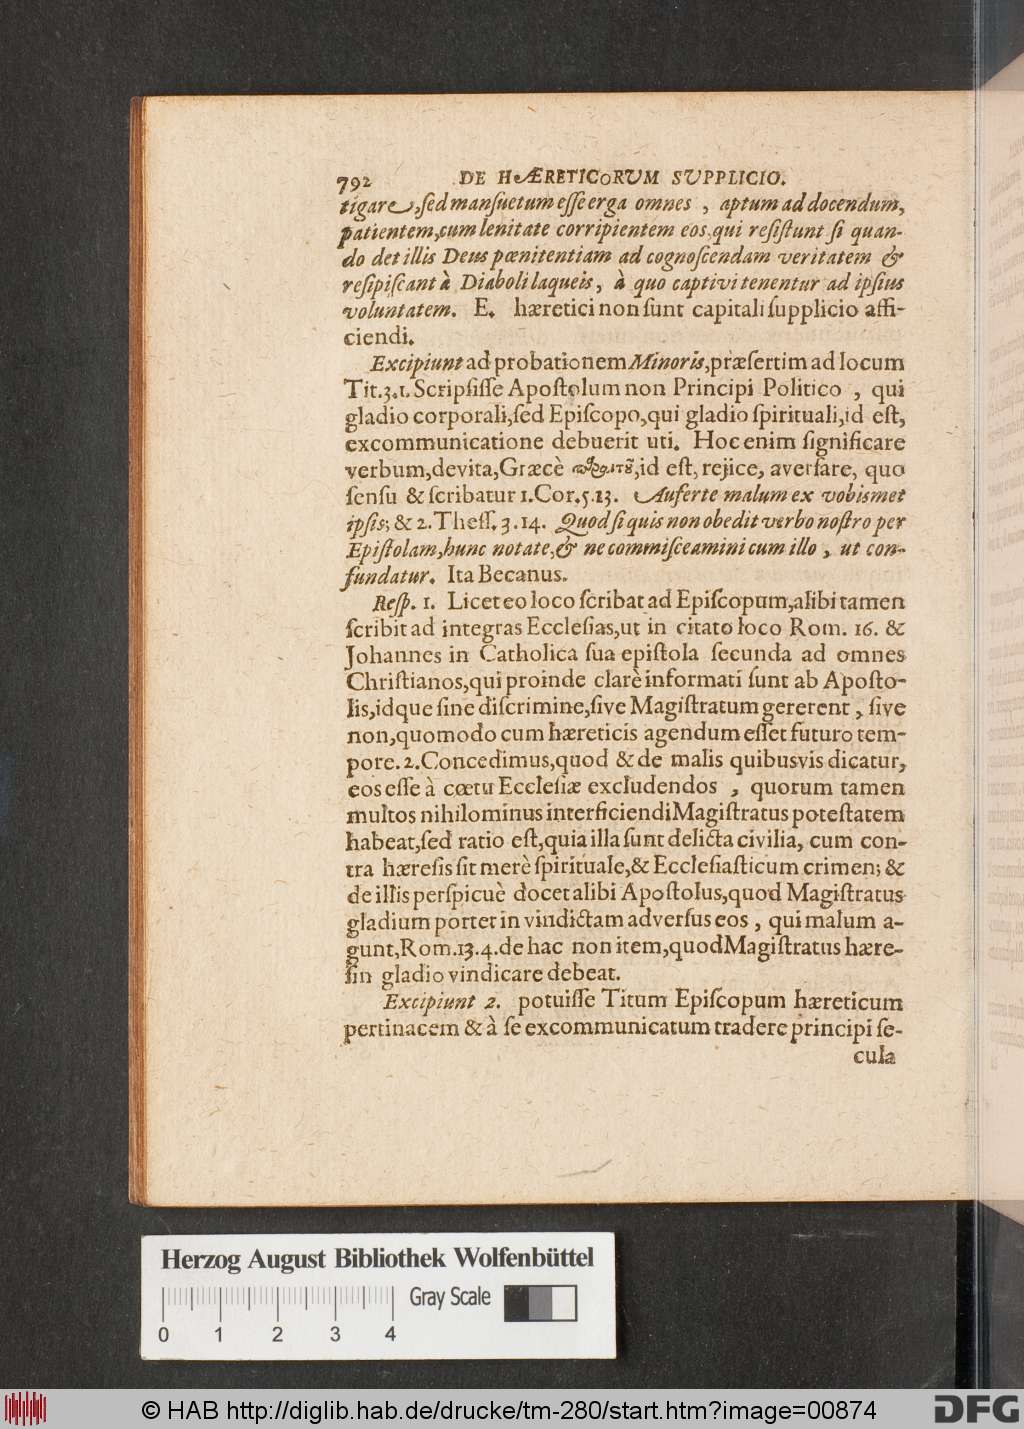 792 DE HÆRETICORUM SVPPLICIO.
tigare, ſed manſuetum eſſe erga omnes, aptum ad docendum,
patientem, cum lenitate corripientem eos qui reſiſtunt ſi quan-
do det illis Deus pœnitentiam ad cognoſcendam veritatem &
reſipiſcant à Diaboli laqueis, à quo captivi tenentur ad ipſius
voluntatem. E. hæretici non ſunt capitali ſupplicio affi-
ciendi.
Excipiunt ad probationem Minoris, præſertim ad locum
Tit. 3. 1. Scripſiſſe Apoſtolum non Principi Politico, qui
gladio corporali, ſed Epiſcopo, qui gladio ſpirituali, id eſt,
excommunicatione debuerit uti. Hoc enim ſignificare
verbum, devita, Græcè id eſt, rejice, averſare, quo
ſenſu & ſcribatur 1. Cor. 5. 13. Auferte malum ex vobismet
ipſis; & 2. Theſſ. 3. 14. Quod ſi quis non obedit verbo noſtro per
Epiſtolam, hunc notate, & ne commiſceamini cum illo, ut con-
fundatur. Ita Becanus.
Reſp. 1. Licet eo loco ſcribat ad Epiſcopum, alibi tamen
ſcribit ad integras Eccleſias, ut in citato loco Rom. 16. &
Johannes in Catholica ſua epiſtola ſecunda ad omnes
Chriſtianos, qui proinde clarè informati ſunt ab Apoſto-
lis, idque ſine diſcrimine, ſive Magiſtratum gererent, ſive
non, quomodo cum hæreticis agendum eſſet futuro tem-
pore. 2. Concedimus, quod & de malis quibusvis dicatur,
eos eſſe à cœtu Eccleſiæ excludendos, quorum tamen
multos nihilominus interficiendi Magiſtratus poteſtatem
habeat, ſed ratio eſt, quia illa ſunt delicta civilia, cum con-
tra hæreſis ſit merè ſpirituale, & Eccleſiaſticum crimen; &
de illis perſpicuè docet alibi Apoſtolus, quod Magiſtratus
gladium portet in vindictam adverſus eos, qui malum a-
gunt, Rom. 13. 4. de hac non item, quod Magiſtratus hære-
ſin gladio vindicare debeat.
Excipiunt 2. potuiſſe Titum Epiſcopum hæreticum
pertinacem & à ſe excommunicatum tradere principi ſe-
cula
Herzog August Bibliothek Wolfenbüttel
Gray Scale
0 1 2 3 4
© HAB http://diglib.hab.de/drucke/tm-280/start.htm?image=00874
DFG